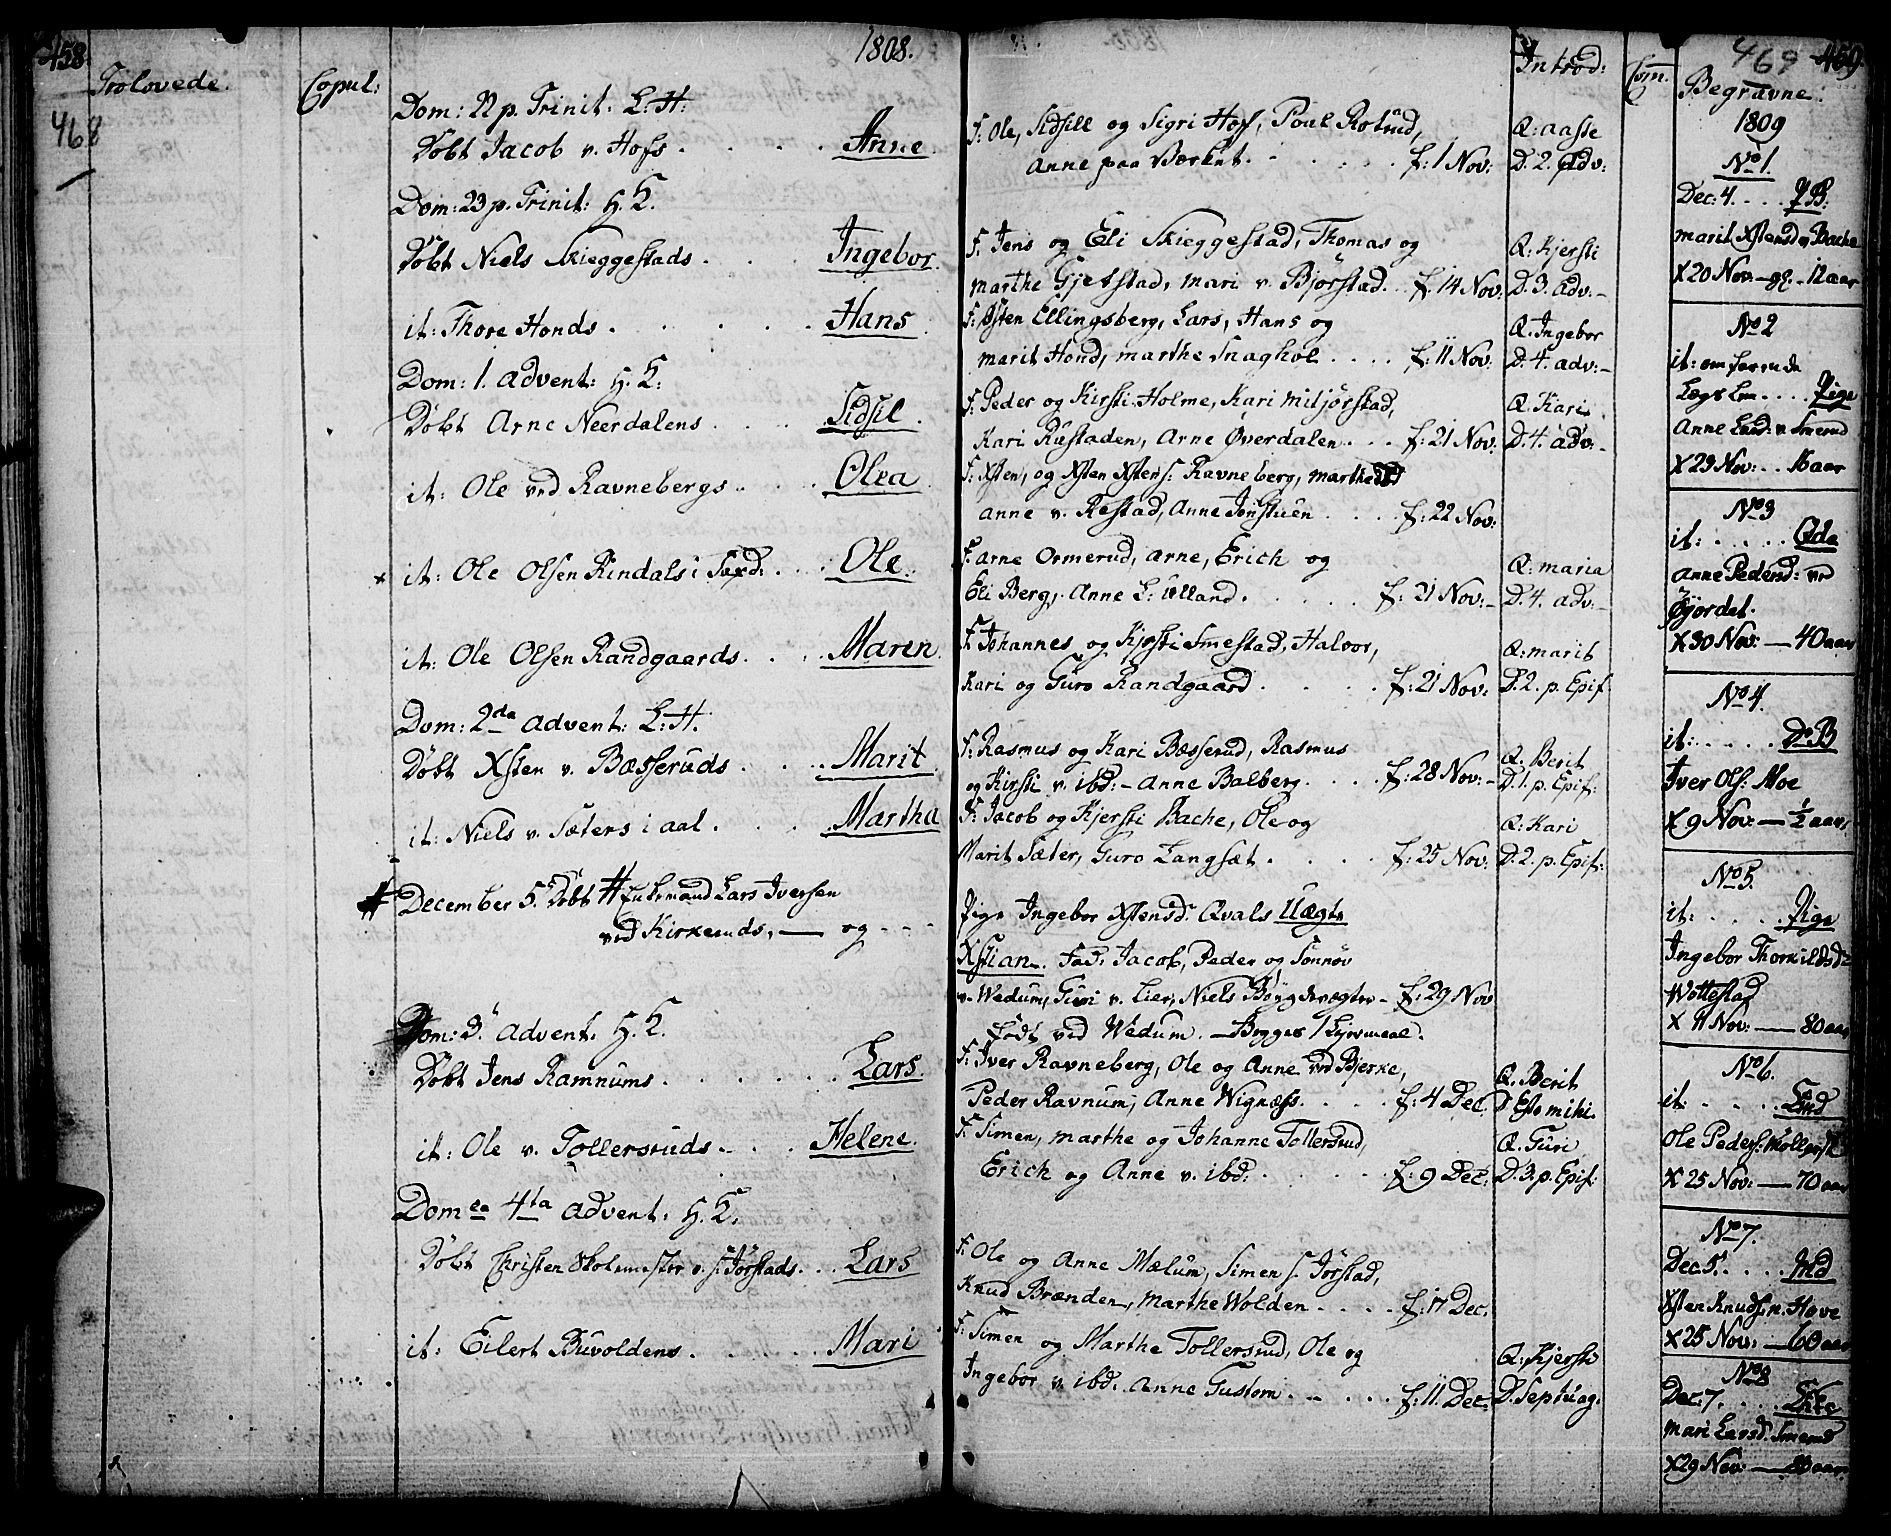 458
468
Trolovede.
Copul:
1808.
Dom: 22 p. Trinit: L.H:
Døbt Jacob v. Hofs . . . . Anne
Dom: 23 p. Trinit: H.K.
Døbt Niels Skieggestads . . . . Ingebor
it: Thore Honds . . . . . Hans
Dom: 1. Advent: H.K:
Døbt Arne Neerdalens . . . . Sidsil
it: Ole ved Ravnebergs . . . Olea
it: Ole Olsen Rindals i . . . Ole
it: Ole Olsen Randgaards . . . Maren
Dom: 2da Advent: L:H:
Døbt Xsten v. Bæsseruds . . . Marit
it: Niels v. Sæters i aal . . . . Martha
December 5. Døbt # Lars Iversen
ved Kirkeruds, — og - - -
Dom: 3. Advent. H.K.
Døbt Jens Ramnums . . . . . . Lars
it: Ole v. Tollersruds . . . . Helene
Dom ca 4ta Advent. H.K.
Døbt Christen Skolemester v. s: Jørstads . . . Lars
it: Eilert Buvoldens . . . . . Mari
469
459
Introd:
Com:
Begravne:
F: Ole, Sidsill og Sigri Hof, Poul Rolsud, Q: Aasse
Anne paa Værket . . . . . . f: 1 Nov: D. 2. Adv:
F: Jens og Eli Skieggestad, Thomas og Q: Kjersti
Marthe Gjetstad, Mari v. Bjørstad. f. 14 Nov: D. 3. Adv:-
F: Østen Ellingsberg, Lars, Hans og Q. Ingebor
Marit Hond, Marthe Snaghol . . . . f: 11 Nov: D. 4. adv:-
F: Peder og Kirsti Holme, Kari Miljørstad, Q: Kari
Kari Rustaden, Arne Øverdalen . . . f: 21 Nov: D. 4. adv:-
F: Xsten, og Xsten Xstens: Ravneberg, Marthe og
Anne v. Røstad, Anne Jønstuen . . . . f: 22 Nov:
F: Arne Ormerud, Arne, Erich og Q: Maria
Eli Berg, Anne L: Ulland . . . . . f: 21 Nov:- D. 4. adv:-
F: Johannes og Kjersti Smestad, Halvor, Q: Marit
Kari og Guro Randgaard . . . . . f: 21 Nov: D. 2. p. Epif:
F: Rasmus og Kari Bæsserud, Rasmus Q. Berit
og Kirsti v. ibd:- Anne Balberg . . . . f: 28 Nov:- D. 1. p. Epif:
F: Jacob og Kjersti Bache, Ole og Q: Kari
Marit Sæter, Guro Langsæt . . . . . f: 25 Nov: D. 2. p. Epif:
Pige Ingebor Xstensd: Qvals Uægte
Xstian. Fad: Jacob, Peder og Sønnøv
v. Wedum, Guri v. Lier, Niels Bøygdevægter - f: 29 Nov
Født ved Wedum. - Begges 1 Lejermaal.
F: Iver Ravneberg, Ole og Anne ved Bjerke, Q. Berit
Peder Ravnum, Anne Wignæss . . . . f: 4 Dec. D Esto mihi.
F: Simen, Marthe og Johanne Tollersrud, Q. Guri
Erich og Anne v. ibd: . . . . . f: 9 Dec: D. 3. p. Epif:
F: Ole og Anne Mælum, Simen s. Jørstad,
Knud Brænden, Marthe Wolden . . . . f: 17 Dec:
F: Simen og Marthe Tollersrud, Ole og Q: Kjersti
Ingebor v. ibd: Anne Gustom . . . . . f: 11 Dec: D. Septuag:
1809
No 1.
Dec: 4. . . . P.B.
Marit Xstensd v. Bache
X 20 Nov - 12 aar
No 2
it:
. . . . Pige
Anne Larsd: v. Smerud
X 23 Nov: . . 16 aar
No 3
it: . . . . .
Anne Pedersd: ved
Gjordet.
X 30 Nov: — 40 aar
No 4.
it: . . . . . D.B
Iver Ols: Moe
X 9 Nov: — 1/2 aar
No 5.
it: . . . . Pige
Ingebor Thorkildsd:
Wottestad
X 11 Nov: — 80 aar
No 6.
it: . . . . .
Ole Peders:
X 25 Nov: — 70 aar
No 7.
Dec. 5. . . . . Ind
Xsten Knuds. n. Hove
X 25 Nov: — 60 aar
No 8
Dec: 7. . . . . Enke
Mari Larsd. Smerud
X 29 Nov: — 83 aar